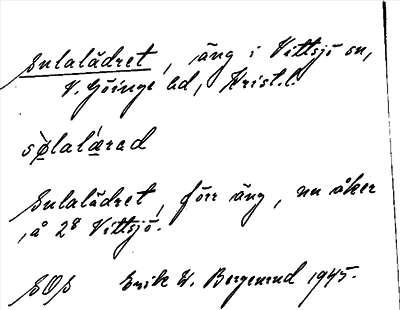 Sulalädret, äng i Vittsjö sn,
V. Göinge hd, Krist. l.
sølalærad
Sulalädret, förr äng, nu åker
å 2⁸ Vittsjö.
SOS Erik W. Bergenrud 1945.